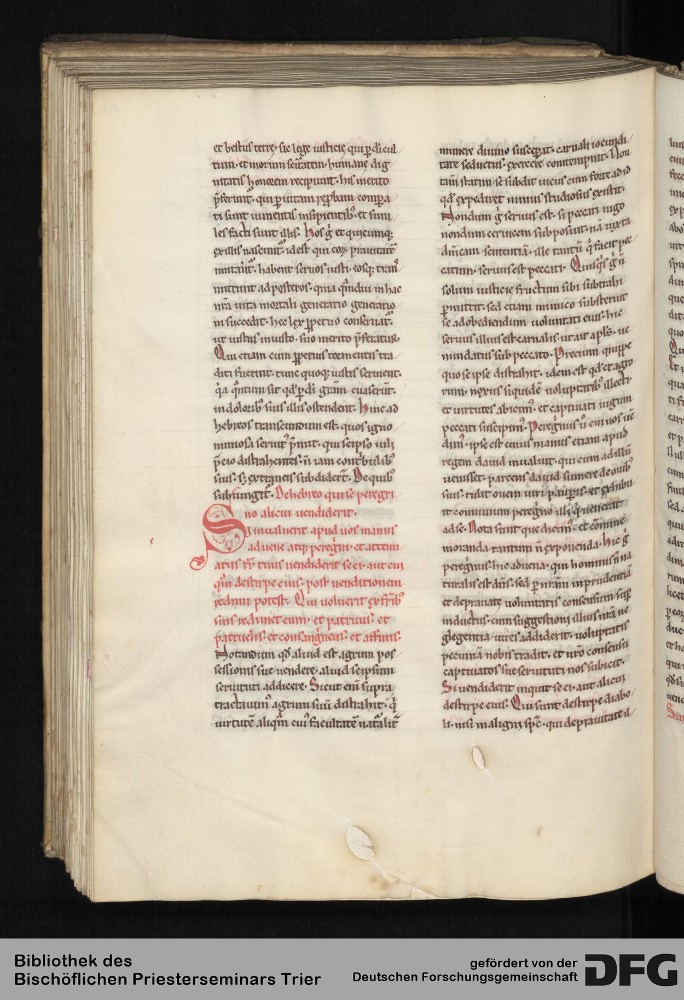 et bestiis terre. sic lege iusticie qui p di cul
tum. et morum scitatem. humane dig
nitatis honorem recipiunt. his merito
pferunt. qui p uitam compa
ti sunt iumentis insipientib; et simi
les facti sunt illis. Hos g et quicumq;
ex illis nascunt. id est qui eoz prauitate
imitant. habent seruos iusti. eosq; trans
mittunt ad posteros. quia in hac
nra uita mortali generatio generatio
ni succedit. hec lex ppetuo conseruat.
ut iustus iniusto. suo merito pferatur.
Qui etiam cum ppetuis tormentis tra
diti fuerint. tunc quoq; iustis seruient.
qa sit qd p di gram euaserunt.
in dolorib; suis illis ostendent. Hinc ad
hebreos transeundum est. quos igno
miniosa seruit pmit. qui seipso uili
pcio distrahentes. n iam contbulib;
suis. s; extraneis subdiderunt. De quib;
subiungit. De hebreo qui se peregri
no alicui uendiderit.
Si inualuerit apud uos manus
aduene atq; peregni. et attenu
atus fr tuus uendiderit se ei. aut cui
qm de stirpe eius. post uenditionem
redimi potest. Qui uoluerit ex frib;
suis redimet eum. et patruus. et
patruelis. et consangneus. et affinis.
Notandum qd aliud est agrum pos
sessionis sue uendere. aliud seipsum
seruituti addicere. Sicut eni supra
tractauim; agrum suu distrahit. q
uirtute aliqm cui; facultate natalit
munere diuino suscepit. carnali iocundi
tate seductus. exercere contempnit. Non
tam statim se subdit uiciis cum forte ad id
qd expediret minus studiosus existit.
Nondum g seruus est. si peccati iugo
nondum ceruicem subposuit. na iuxta
dnicam sententia. ille tantu q facit pec
catum. seruus est peccati. Quisqs g n
solum iusticie fructum sibi subtrahi
pmittit. sed etiam inimico substernit
se ad obediendum uoluntati eius. hic
seruus illius est. carnalis. ut ait apls. ue
nundatus sub peccato. Precium quippe
quo se ipse distrahit. idem est qd et agro
rum. nexus siquide uoluptatib; illecti
et uirtutes abicim. et captiuati iugum
peccati suscipim;. Peregrinus u cui nos ue
dim; ipse est cuius manus etiam apud
regem dauid inualuit. qui cum ad illu
uenisset. parcens dauid sumere de ouib;
suis. tulit ouem uiri paupis. et exhibu
it conuiuium peregrino illi q uenerat
ad se. Nota sunt que dicim; et comme
moranda tantum n exponenda. hic g
peregrinus. hic aduena. qui hominis n na
turalis est dns. sed p nram inprudentia
et deprauate uoluntatis consensum sup
inductus. cum suggestioni illius nra ne
glegentia uires addiderit. uoluptatis
pecunia nobis tradit. et nro consensu
captiuatos sue seruituti nos subicit.
Si uendiderit inquit se ei. aut alicui
de stirpe eius. Qui sunt de stirpe diabo
li. nisi maligni spc. qui deprauitate il
Bibliothek des
Bischöflichen Priesterseminars Trier
gefördert von der
Deutschen Forschungsgemeinschaft
DFG